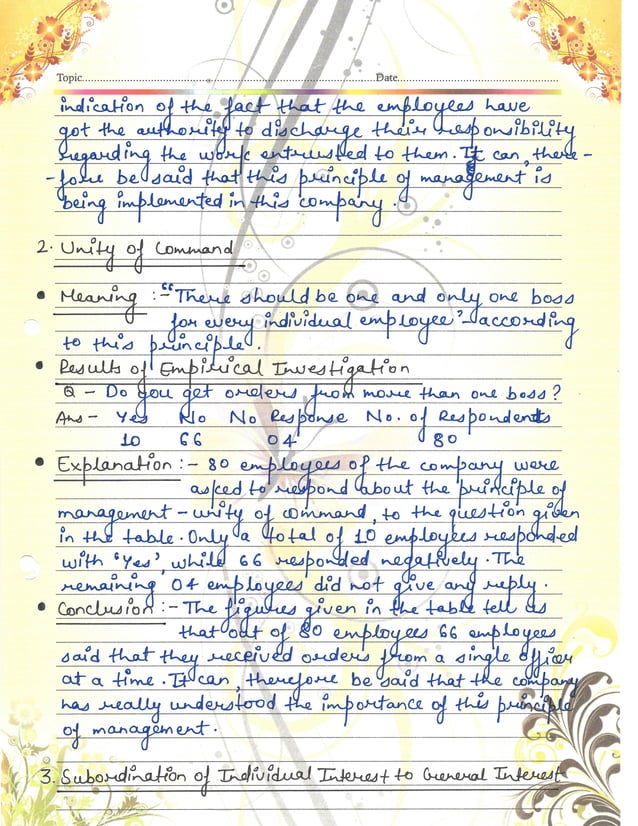 Topic.......................................................... Date..........................................................
indication of the fact that the employees have
got the authority to discharge their responsibility
regarding the work entrusted to them. It can, there-
-fore be said that this principle of management is
being implemented in this company.
2. Unity of Command
• Meaning :- "There should be one and only one boss
for every individual employee"-according
to this principle.
• Results of Empirical Investigation
Q - Do you get orders from more than one boss?
Ans - Yes No No Response No. of Respondents
10 66 04 80
• Explanation :- 80 employees of the company were
asked to respond about the principle of
management - unity of command, to the question given
in the table. Only a total of 10 employees responded
with 'Yes', while 66 responded negatively. The
remaining 04 employees did not give any reply.
• Conclusion :- The figures given in the table tell us
that out of 80 employees 66 employees
said that they received orders from a single officer
at a time. It can, therefore be said that the company
has really understood the importance of this principle
of management.
3. Subordination of Individual Interest to General Interest